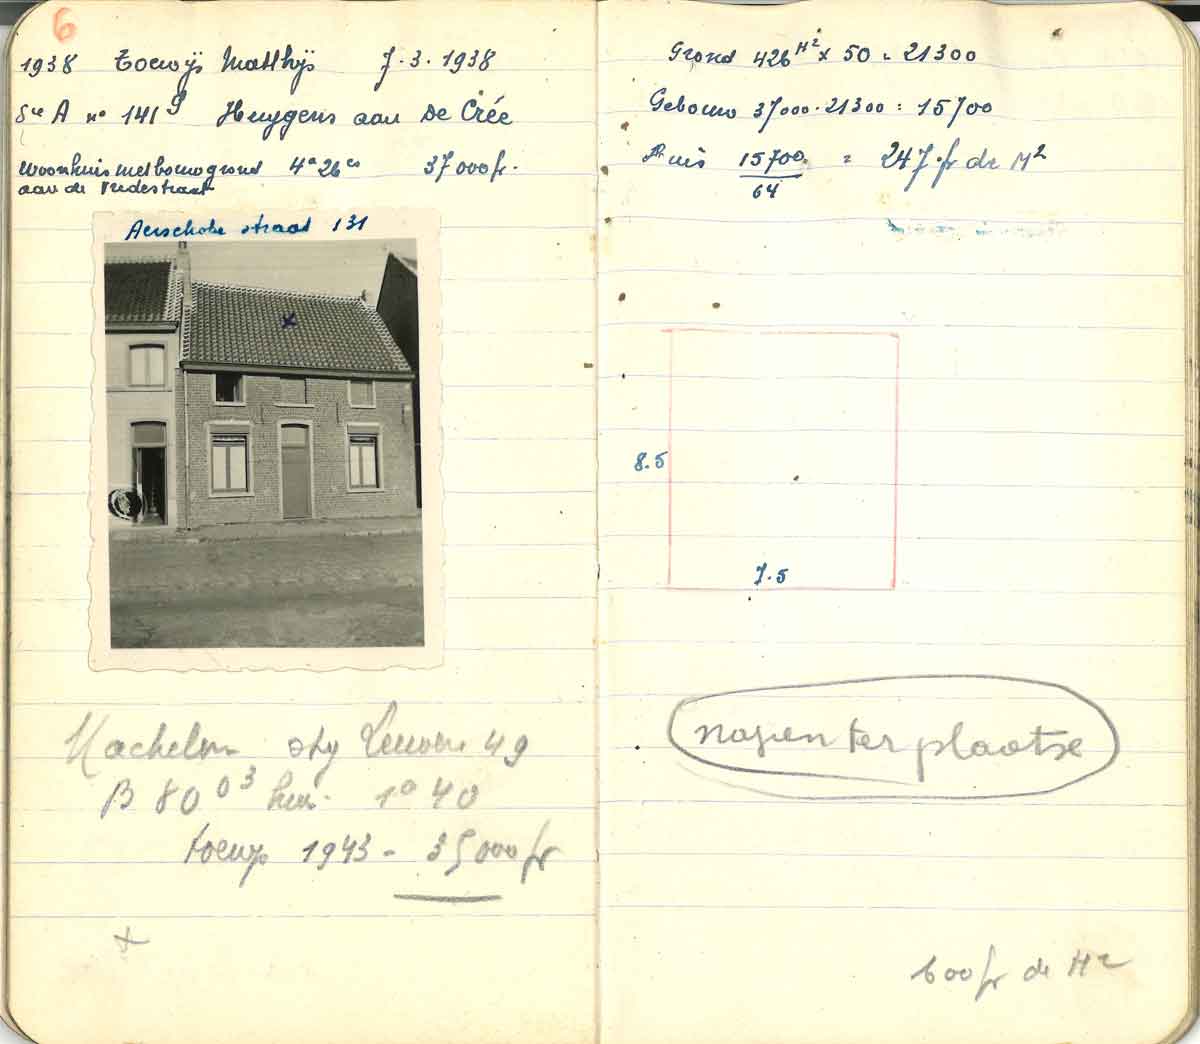 6
1938 Toewijs Matthijs 7.3.1938
Sie A no 141g Huygens aan De Crée
Woonhuis met bouwgrond 4a 26ca 37000fr.
aan de Vredestraat
Aerschotse straat 131
Machelen stg Leuven 49
B 80 03 huis 1a 40
toewijs 1943 - 35000fr
x
Grond 426 M² x 50 = 21300
Gebouw 37000-21300 = 15700
Huis 15700 = 247 fr de M²
64
8.5
7.5
nazien ter plaatse
600fr de M²